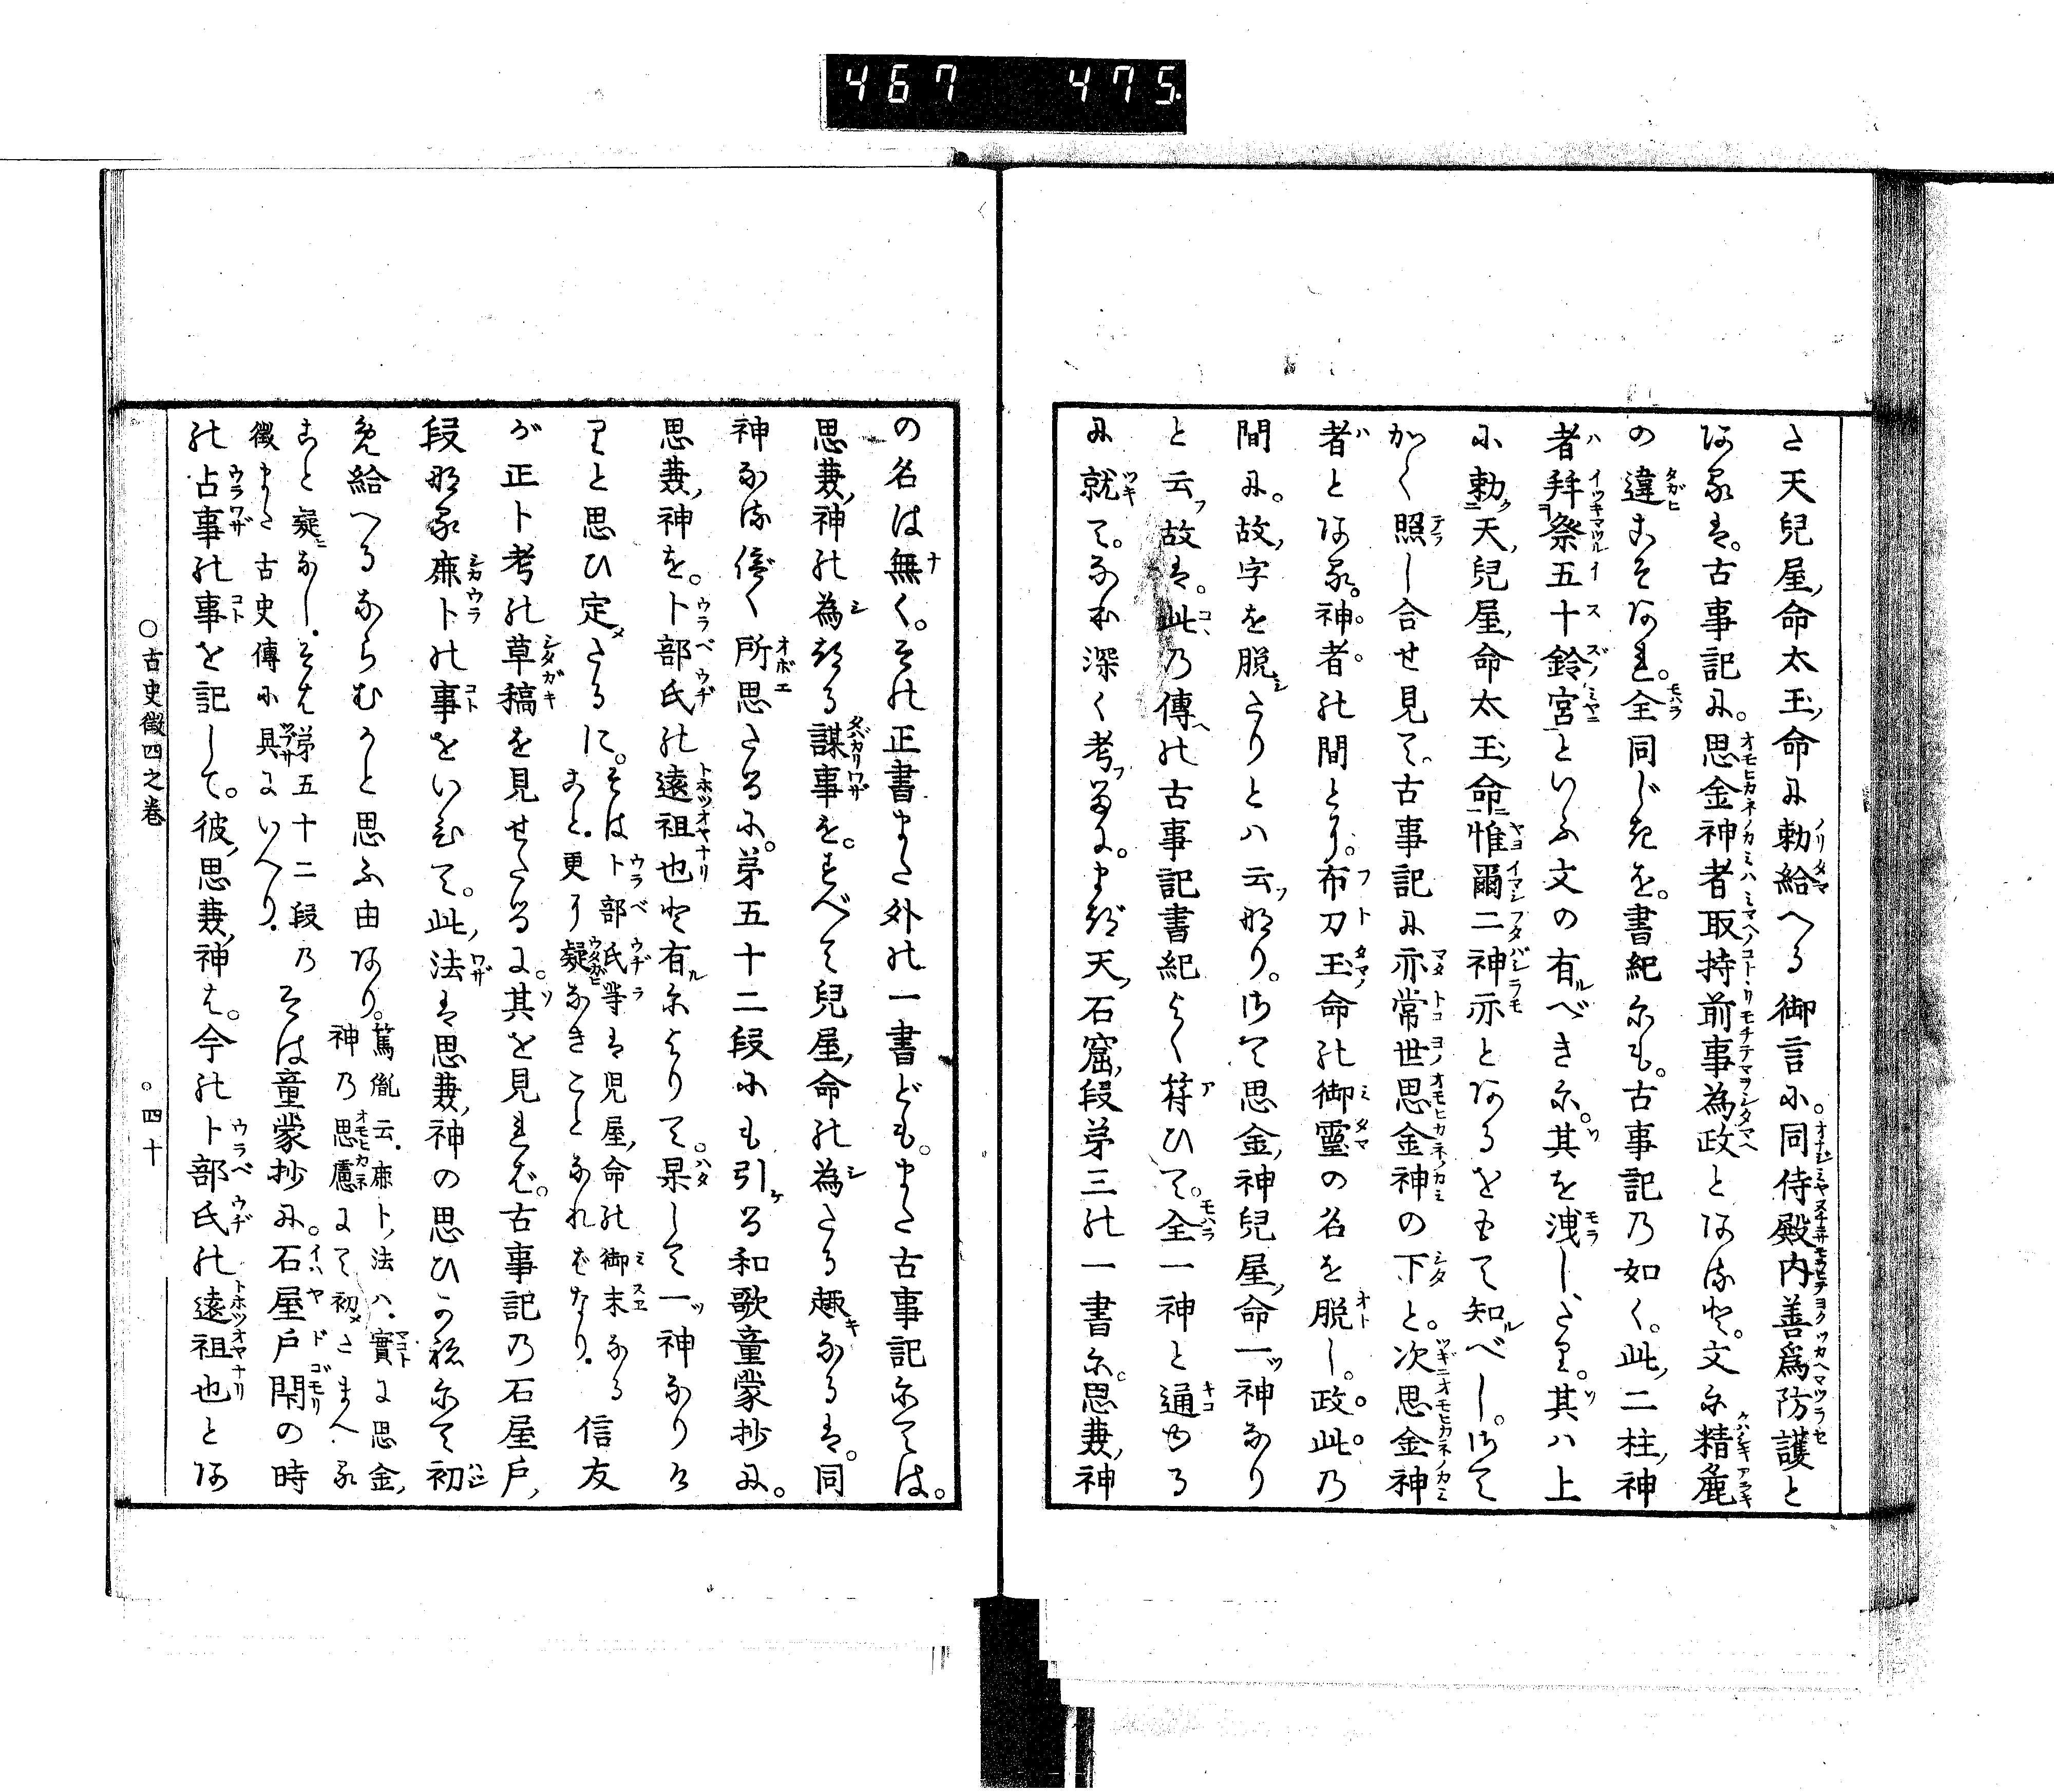 467 475.
さ天兒屋命太玉命に勅給へる御言に。同侍殿内善爲防護と
ある。古事記に。思金神者取持前事為政とある。文に精麁
の違こそあれ。全同じきを。書紀にも。古事記の如く。此二柱神
者拜祭五十鈴宮といふ文の有べきに。其を洩したり。其ハ上
に勅天兒屋命太玉命惟爾二神亦とあるをもて知べし。さて
かく照し合せ見て。古事記に亦常世思金神の下と。次思金神
者とある。神者の間とに。布刀玉命の御靈の名を脱し。政此の
間に。故字を脱したりとハ云なり。さて思金神兒屋命一神なり
と云故は。此の傳の古事記書紀よく符ひて。全一神と通ゆる
に就て。なほ深く考ふるに。まづ天石窟段第三の一書に。思兼神
の名は無く。その正書また外の一書ども。また古事記にては。
思兼神の為る謀事を。すべて兒屋命の為たる趣なるは。同
神なる俤く所思たるに。第五十二段にも引る和歌童蒙抄に。
思兼神を。卜部氏の遠祖也と有によりて。杲して一神なりけ
りと思ひ定たるに。そは卜部氏等は児屋命の御末なること。更に疑なきことなればなり。信友
が正卜考の草稿を見せたるに。其を見れば。古事記の石屋戸
段なる鹿卜の事をいひて。此法は思兼神の思ひかねにて初
免給へるならむかと思ふ由あり。篤胤云。鹿卜法ハ。實に思金神の思慮にて初さまへる
こと疑なし。そは第五十二段の徴また古史傳に具にいへり。そは童蒙抄に。石屋戸閇の時
の占事の事を記して。彼思兼神は。今の卜部氏の遠祖也とあ
○古史徴四之巻
○四十